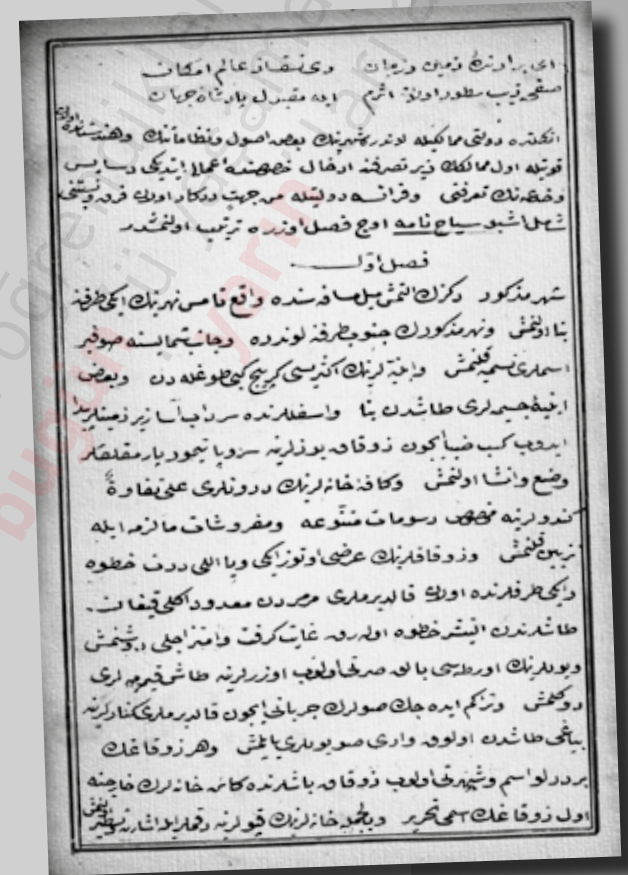 ای یرادنده زمین و زمان وی نسقساز عالم امکان
صفحه زیب سطور اولان اثرم ایله مقبول پادشاه جهان
انکلتره دولتی ممالکیله لوندره شهرینك بعض اصول و نظاماتنك وهندستانده اولان
قوتیله اول ممالکك زیر تصرفنه ادخال خصوصنده اعمال ایتدیکی دسایس
و خدعه‌نك تعرفتی و فرانسه دولتیله من جهت درکار اولان فرق و نسبتی
شامل اشبو سیاح نامه اوچ فصل اوزره ترتیب اولنمشدر
فصل اول
شهر مذکور دکزك التمش میل مسافه سنده واقع تامس نهرینك ایکی طرفنه
بنا اولنمش ونهر مذکورك جنوب طرفنه لوندره وجانب شمالیسنه
اسملری تسمیه قلنمش وابنیه لرینك اکثریسی کرپیچ کبی طوغله دن وبعض
ابنیۀ جسیمه لری طاشدن بنا واسفللرنده سرداب آسا زیر زمینلر پیدا
ایدوب کسب ضیا ایچون زوقاق یوزلرینه سراپا تیمور پارمقلقلر
وضع وانشا اولنمش وکافۀ خانه لرینك درونلری علی تفاوة
کندولرینه مخصوص رسومات متنوعه ومفروشات مالزمه ایله
تزیین قلنمش وزوقاقلرینك عرضی اوتوز ایکی ویا اللی درت خطوه
وایکی طرفلرنده اولان قالدیرملری مرمردن معدود اکلی قیفان
طاشلرندن التیشر خطوه اوله رق غایت کرفت وامتزاجلی دوشنمش
ویوللرینك اورطه سی بالق صرتی اولوب اوزرلرینه طاش قیرمه لری
دوکلمش وتراکم ایده جك صولرك جریانی ایچون قالدیرملری کنارلرینه
بیاغی طاشدن اولوق واری صو یوللری یاپلمش وهر زوقاغك
بررلو اسم وشهرتی اولوب زوقاق باشلرنده کائن خانه لرك خارجنه
اول زوقاغك اسمی تحریر وبالجمله خانه لرینك قپولرینه رقملر ایله اشارت